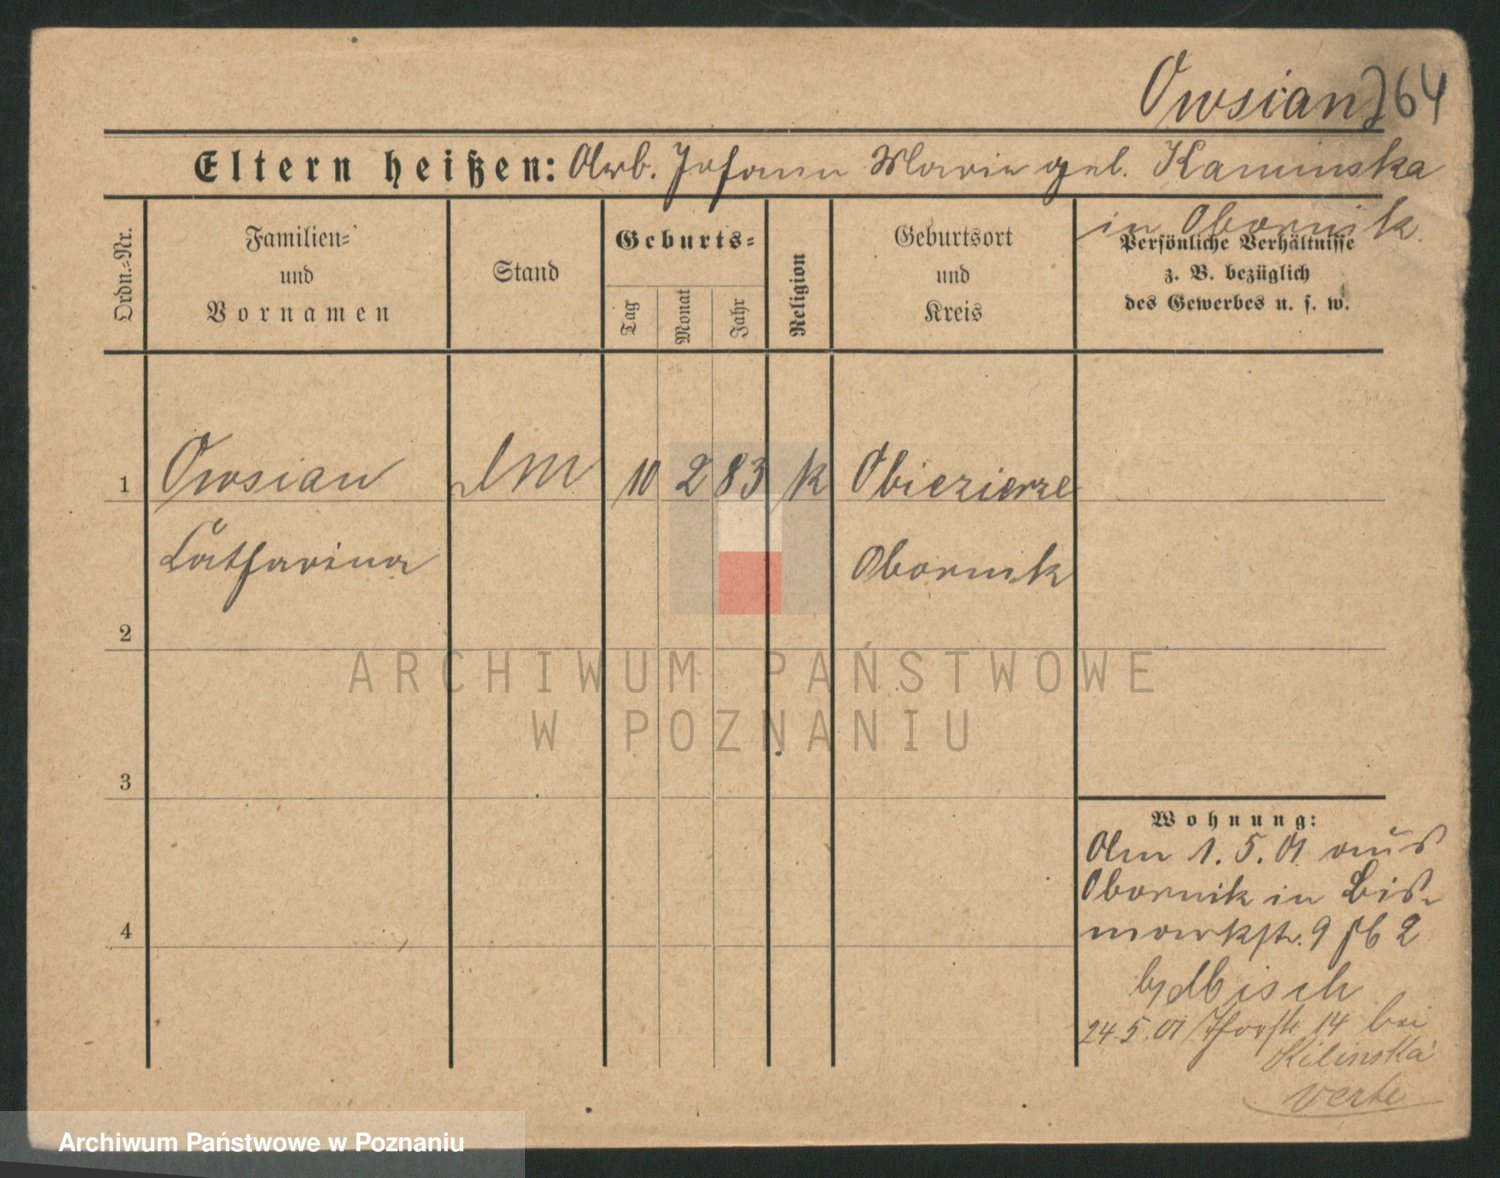 Owsian 264
Eltern heißen: Arb. Johann Marie geb. Kaminska
in Obornik
Ordn.-Nr.
Familien-
und
Vornamen
Stand
Geburts-
Tag
Monat
Jahr
Religion
Geburtsort
und
Kreis
Persönliche Verhältnisse
z. B. bezüglich
des Gewerbes u. s. w.
1 Owsian DM 10 2 83 k Obiezierze
Catharina Obornik
2
3
4
Wohnung:
Am 1. 5. 01 aus
Obornik in Bis-
markstr. 9 2
24.5.01 14 bei
Kilinska
verte
ARCHIWUM PAŃSTWOWE
W POZNANIU
Archiwum Państwowe w Poznaniu